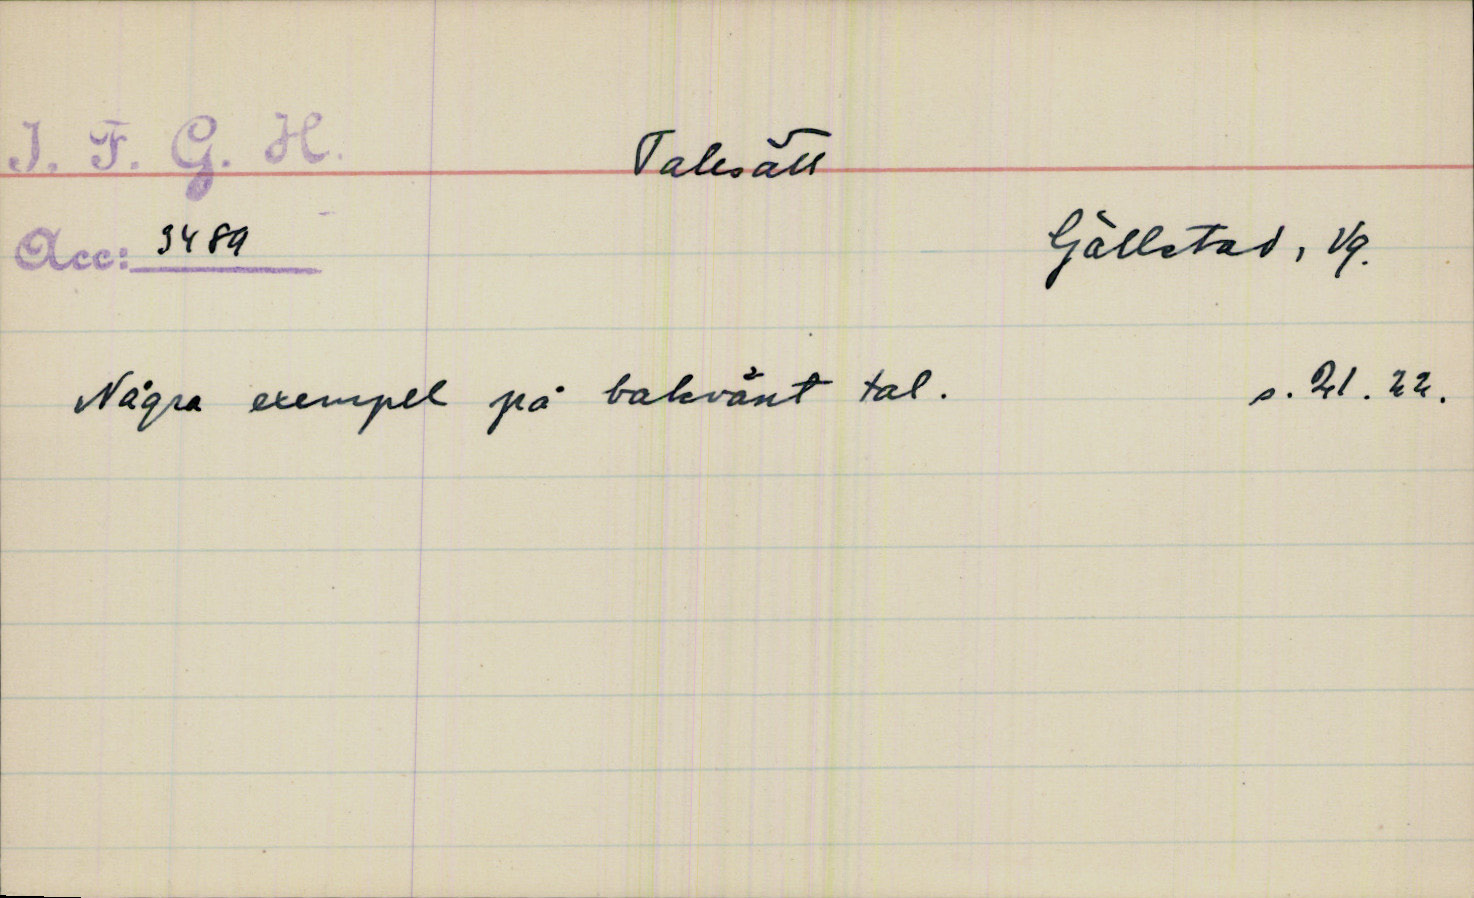 I. F. G. H.
Talesätt
Acc: 3489
Gällstad, Vg.
Några exempel på bakvänt tal. s. 21. 22.